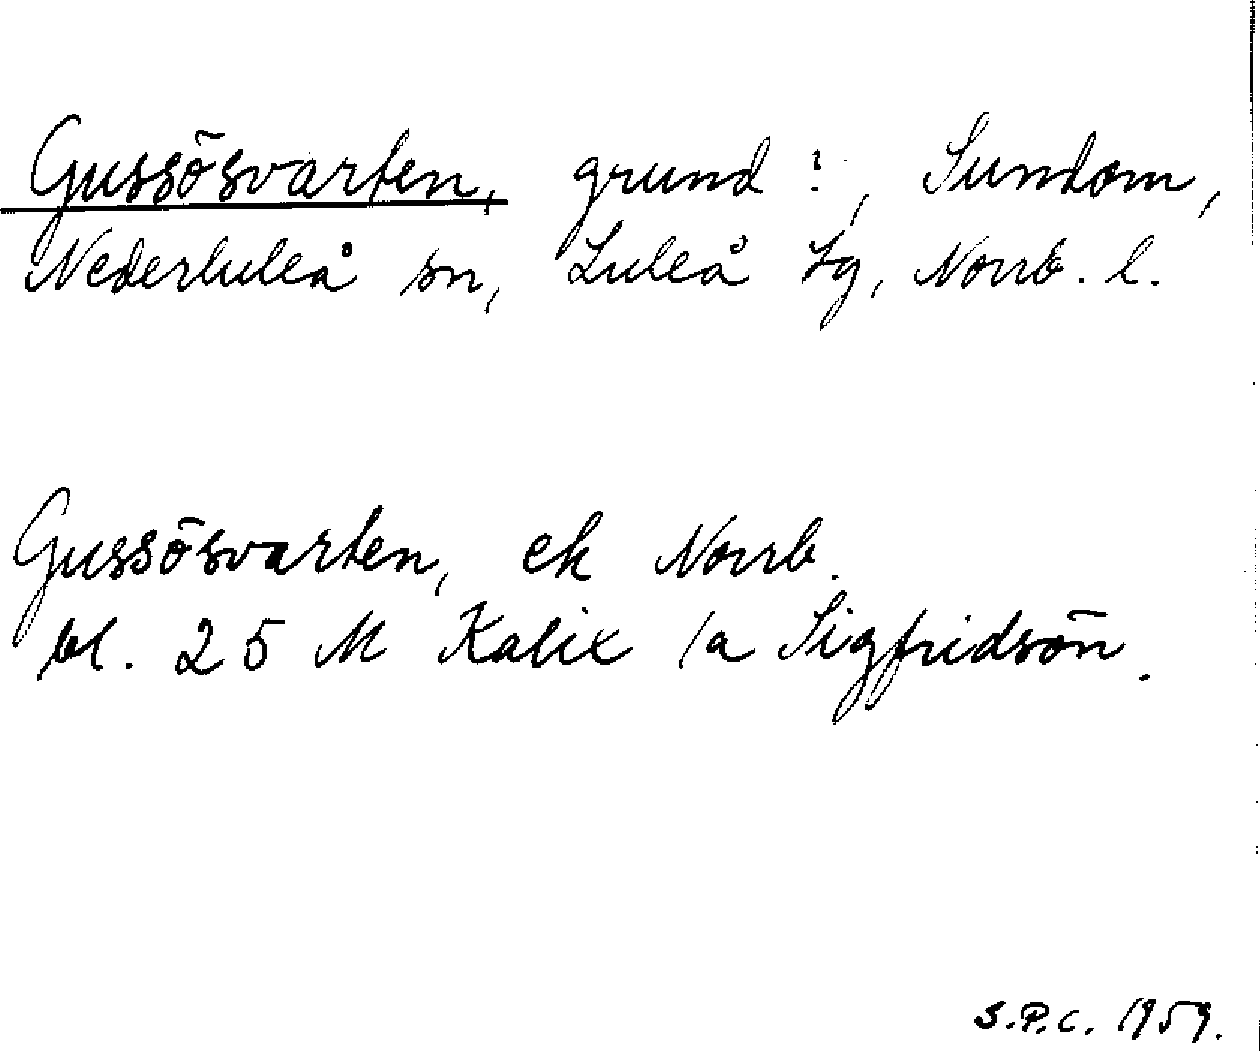 Gussösvarten, grund?, Sundom,
Nederluleå sn, Luleå tg, Norrb. l.
Gussösvarten, ek Norrb.
bl. 25 M Kalix /a Sigfridsön.
S.P.C. 1959.